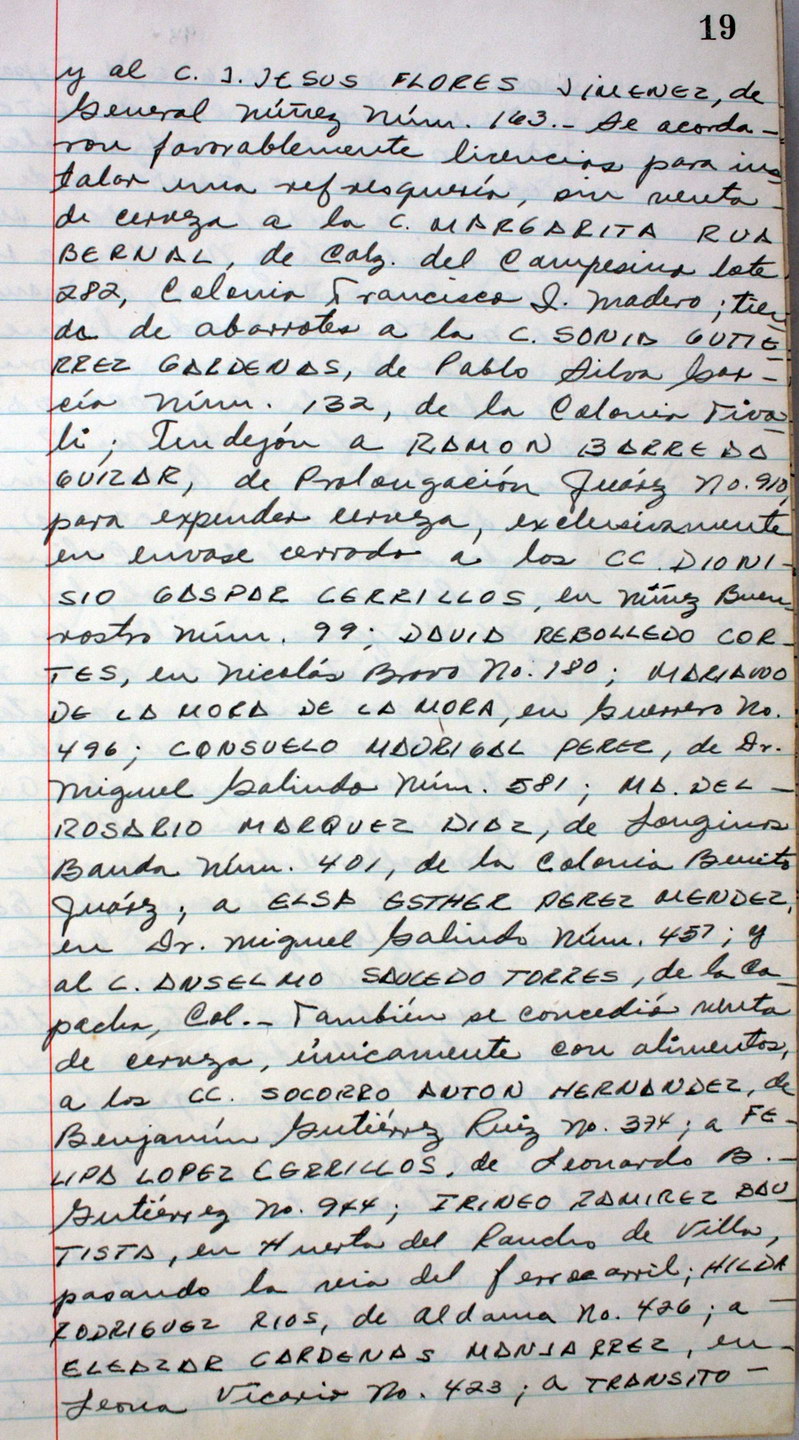 19
y al C. J. JESUS FLORES JIMENEZ, de
General Núñez Núm. 163.- Se acorda-
ron favorablemente licencias para ins
talar una refresquería, sin venta
de cerveza a la C. MARGARITA RUA
BERNAL, de Calz. del Campesino lote
282, Colonia Francisco I. Madero; tien
da de abarrotes a la C. SONIA GUTIE
RREZ CARDENAS, de Pablo Silva Gar-
cía Núm. 132, de la Colonia Tívo
li; Tendejón a RAMON BARREDA
GUIZAR, de Prolongación Juárez No. 910,
para expender cerveza, exclusivamente
en envase cerrado a los CC. DIONI-
SIO GASPAR CERRILLOS, en Núñez Buen-
rostro Núm. 99; DAVID REBOLLEDO COR-
TES, en Nicolás Bravo No. 180; MARIANO
DE LA MORA DE LA MORA, en Guerrero No.
496; CONSUELO MADRIGAL PEREZ, de Dr.
Miguel Galindo Núm. 581; MA. DEL -
ROSARIO MARQUEZ DIAZ, de Longinos
Banda Núm. 401, de la Colonia Benito
Juárez; a ELSA ESTHER PEREZ MENDEZ,
en Dr. Miguel Galindo Núm. 457; y
al C. ANSELMO SAUCEDO TORRES, de la Ca-
pacha, Col.- También se concedió venta
de cerveza, únicamente con alimentos,
a los CC. SOCORRO ANTON HERNANDEZ, de
Benjamín Gutiérrez Ruiz No. 374; a FE-
LIPA LOPEZ CERRILLOS, de Leonardo B.-
Gutiérrez No. 944; IRINEO RAMIREZ BAU
TISTA, en Huerta del Rancho de Villa,
pasando la via del ferrocarril; HILDA
RODRIGUEZ RIOS, de Aldama No. 426; a -
ELEAZAR CARDENAS MANJARREZ, en-
Leona Vicario No. 423; a TRANSITO -